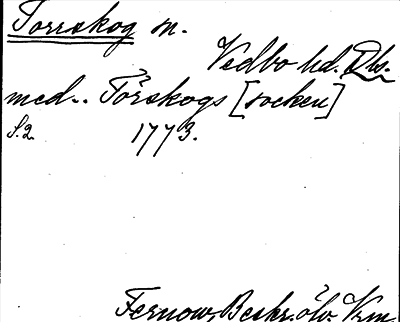 Torrskog sn.
Vedbo hd. Dls.
med.. Törskogs [socken]
S.2. 1773.
Fernow, Beskr. öfv. Vrm